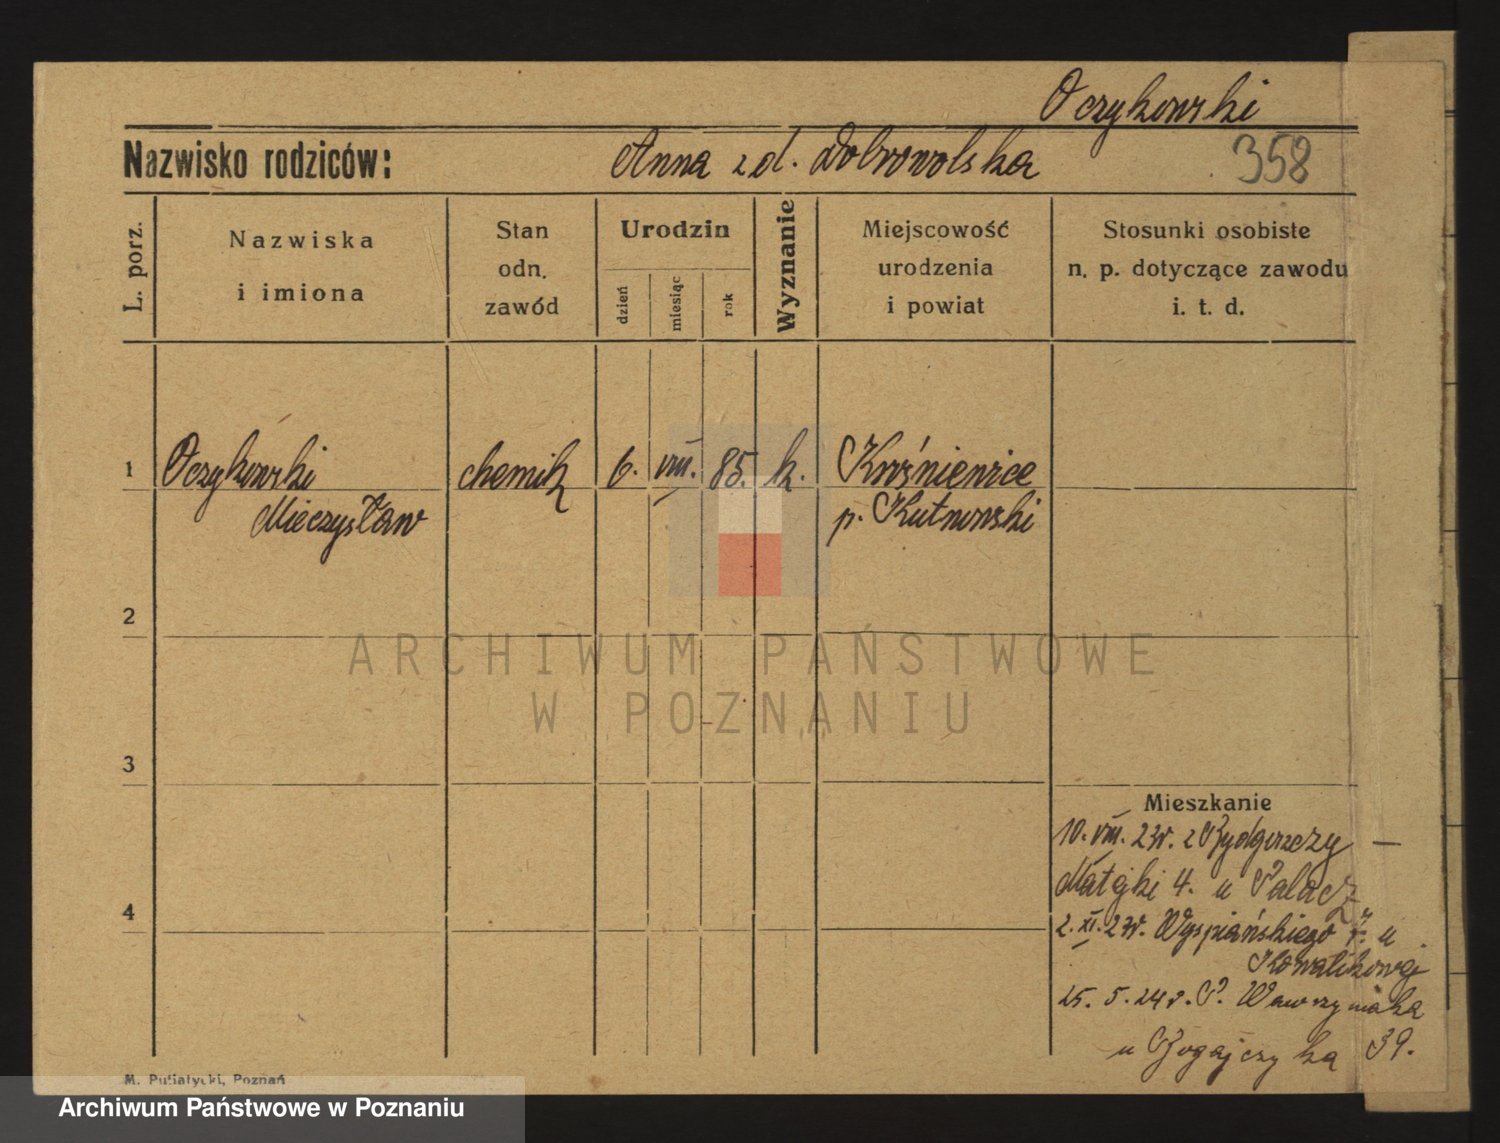 Oczykowski
Nazwisko rodziców: Anna z d. Dobrowolska 358
L. porz.
Nazwiska
i imiona
Stan
odn.
zawód
Urodzin
dzień
miesiąc
rok
Wyznanie
Miejscowość
urodzenia
i powiat
Stosunki osobiste
n. p. dotyczące zawodu
i. t. d.
1 Oczykowski chemik 6. VIII. 85. k. Krośniewice
Mieczysław p. Kutnowski
2
ARCHIWUM PAŃSTWOWE
W POZNANIU
3
Mieszkanie
10. VIII. 23r. z Bydgoszczy —
Matejki 4. u Palacz
4
2. XI. 23r. Wyspiańskiego u
Kowalikowej
25. 5. 24 r. P. Wawrzyniaka
u Bogajczyka 39.
M. Putiatycki, Poznań
Archiwum Państwowe w Poznaniu